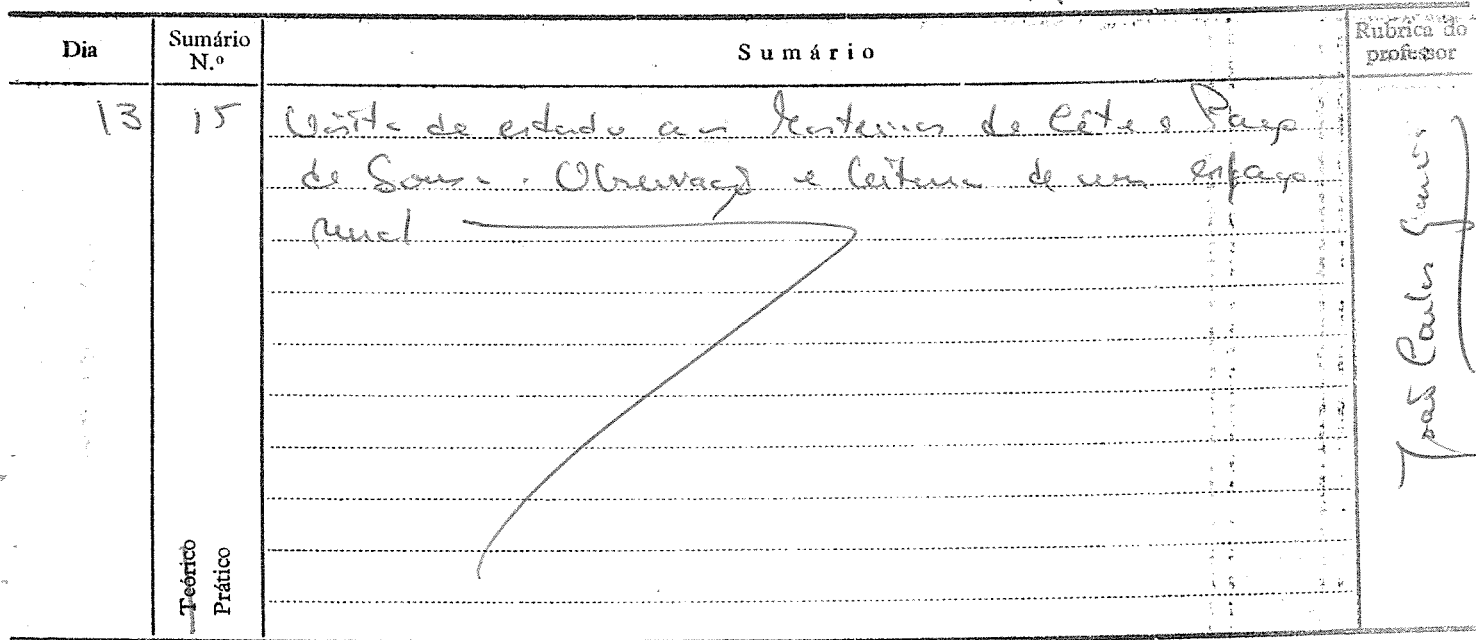 Dia
Sumário N.º
Sumário
Rubrica do professor
13
15
Visita de estudo aos Mosteiros de Cête e Paço
de Sousa. Observação e leitura de um espaço
rural
Teórico
Prático
João Carlos